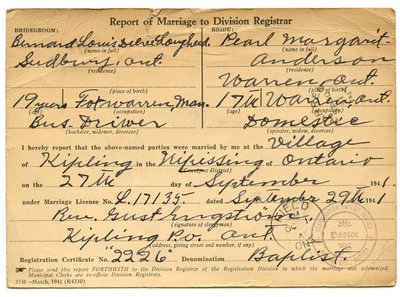 Report of Marriage to Division Registrar
BRIDEGROOM: BRIDE:
Bernard Louis Pearl Margaret
(name in full) (name in full)
Sudbury, Ont. Anderson
(residence) (residence)
Warren, Ont.
(place of birth) (place of birth)
19 years Fox Warren, Man. 17 Warren, Ont.
(age) (occupation) (age) (occupation)
Bus Driver Domestic
(bachelor, widower, divorcee) (spinster, widow, divorcee)
I hereby report that the above-named parties were married by me at the Village
of Kipling in the Nipissing of Ontario
(County or District)
on the 27th day of September 1941.
under Marriage License No. L.17135 dated September 29th 1941
Rev. Gust Engström
(signature of clergyman)
Kipling P.o. Ont.
(address, giving street and number, if any)
Registration Certificate No. "2226" Denomination Baptist.
Please send this report FORTHWITH to the Division Registrar of the Registration Division in which the marriage was solemnized.
Municipal Clerks are ex-officio Division Registrars.
35M—March, 1941 (R4330)
Pastor